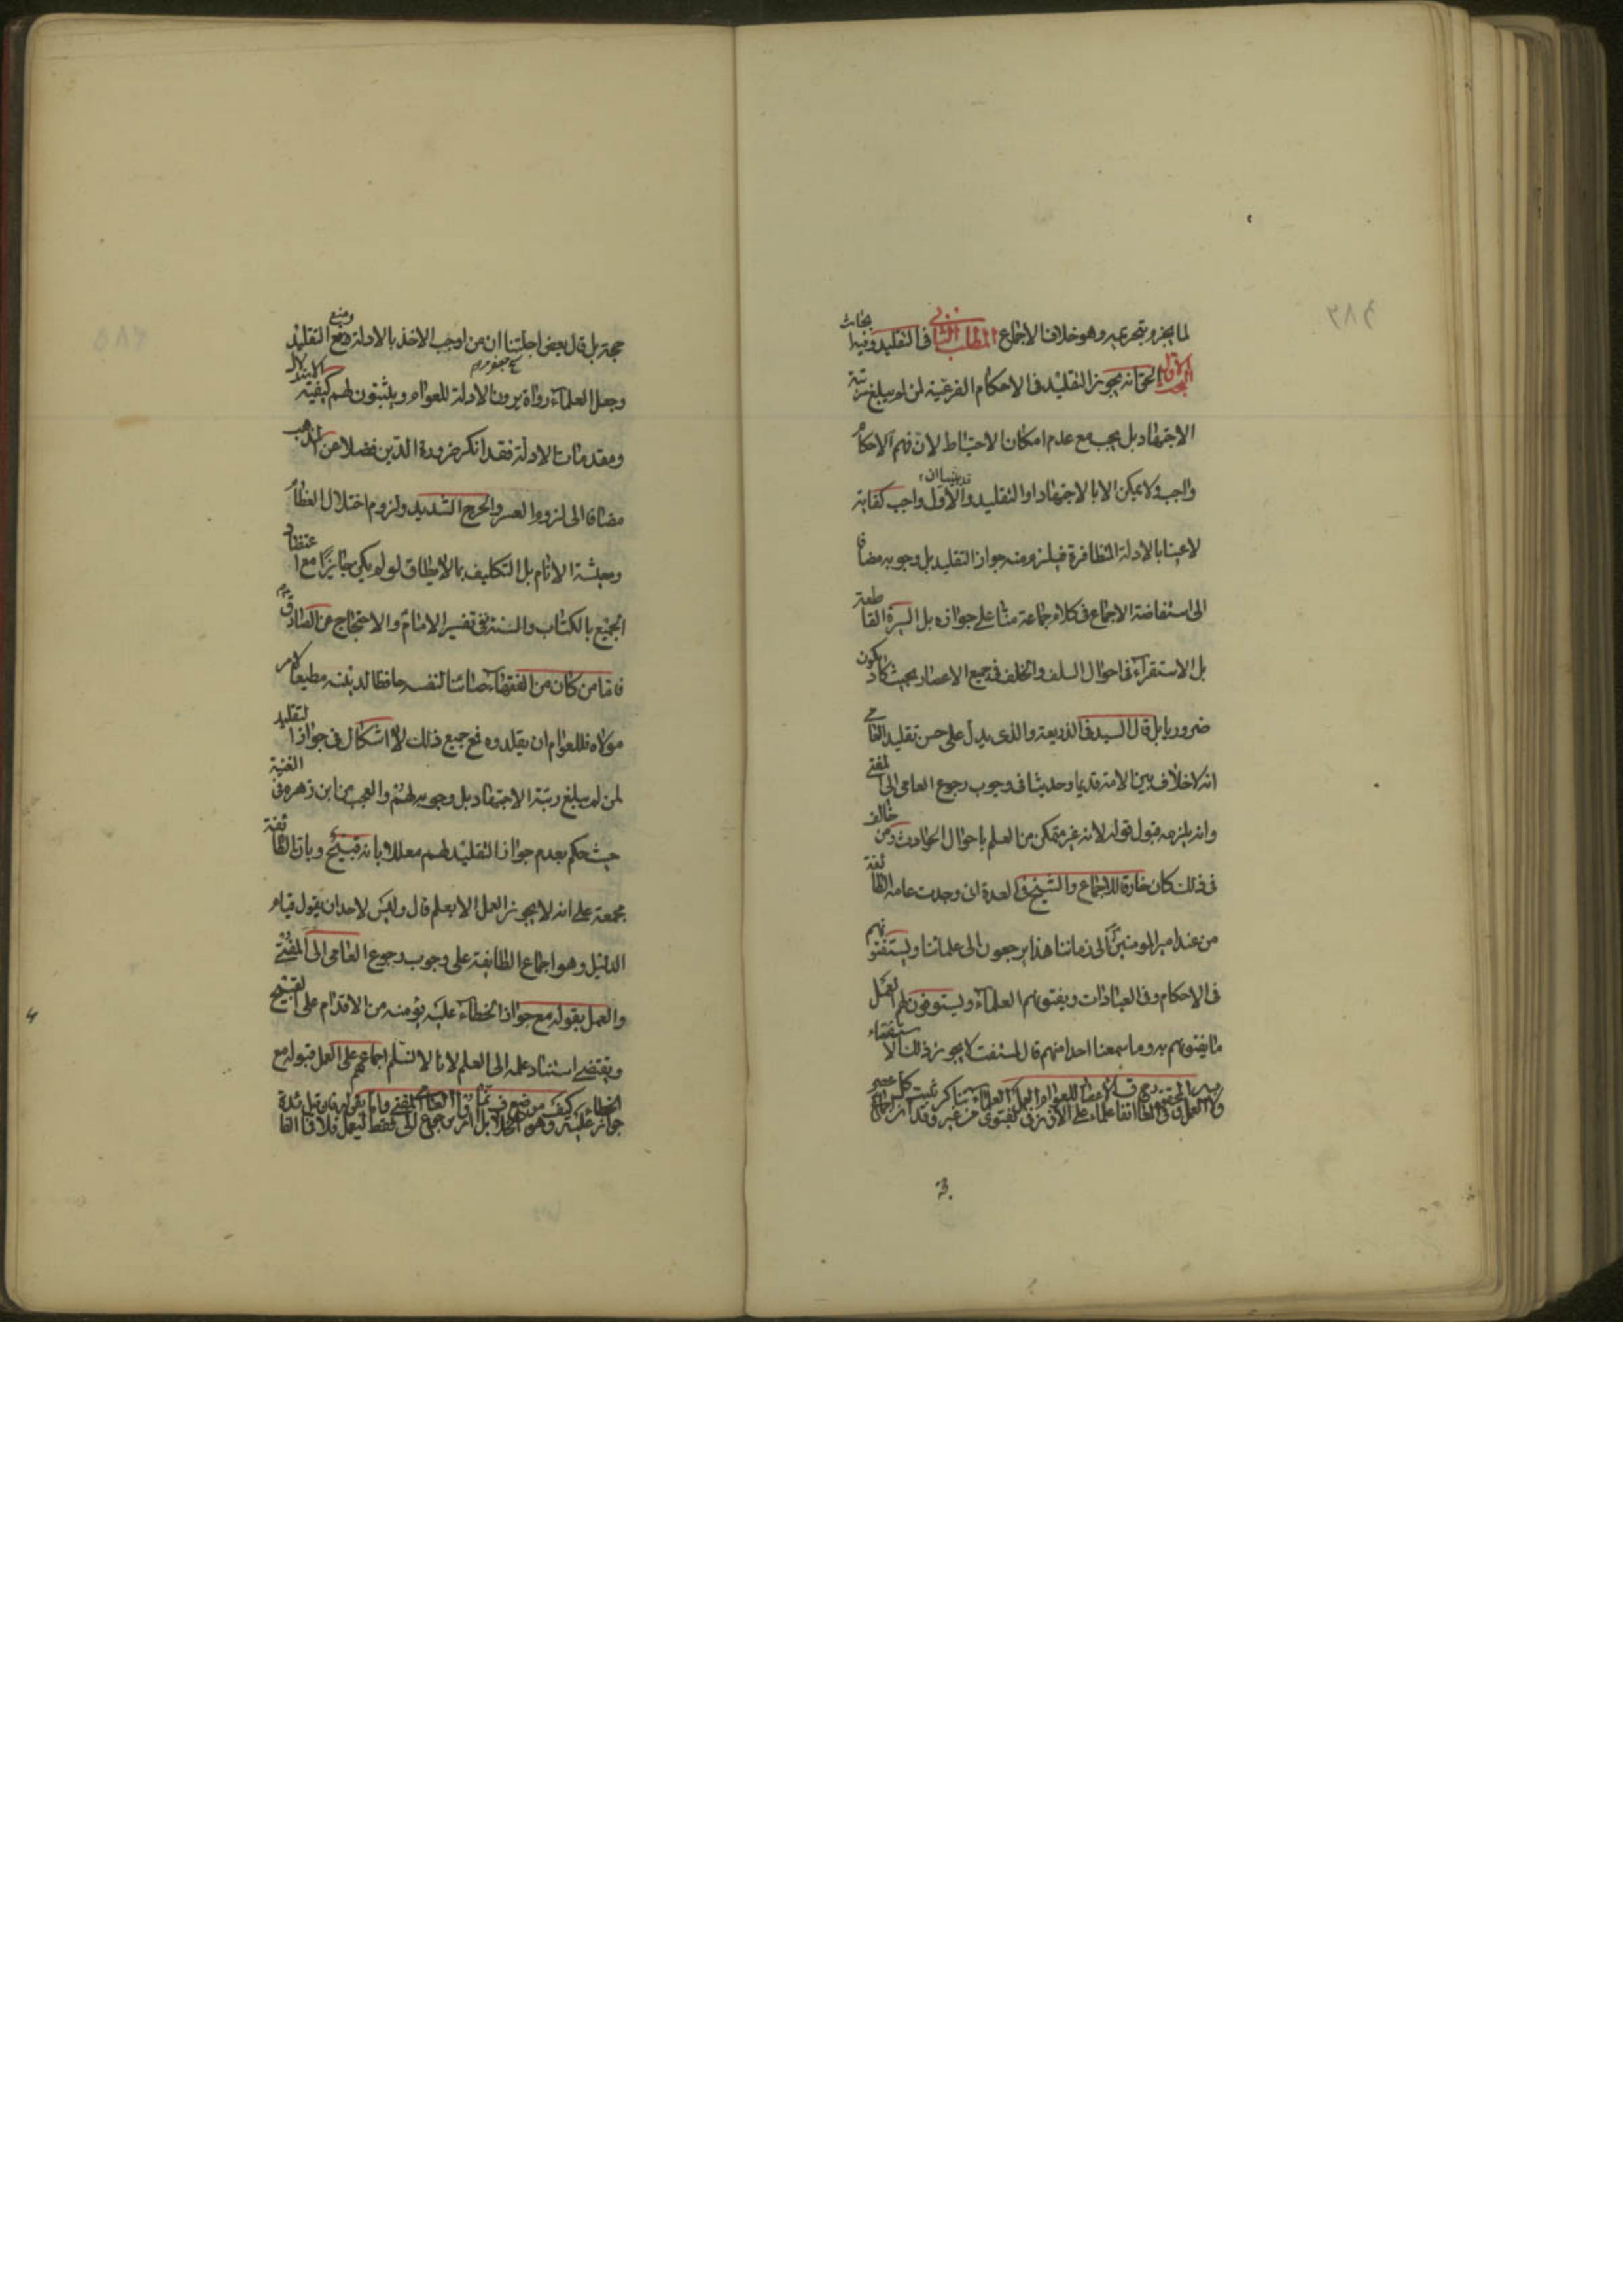 لما يجزو بتحريمه وهو خلاف الاجماع المطلب الثاني في التقليد وفيه ابحاث
البحث الاول الحق انه يجوز التقليد في الاحكام الفرعية لمن لم يبلغ رتبة
الاجتهاد بل يجب مع عدم امكان الاحتياط لان فهم الاحكام
واجب ولا يمكن الا بالاجتهاد او التقليد والاول واجب كفاية
لا عينا بالادلة المتظافرة فيلزم منه جواز التقليد بل وجوبه مضافا
الى استفاضة الاجماع في كلام جماعة منا على جوازه بل السيرة القاطعة
بل الاستقراء في احوال السلف والخلف في جميع الاعصار بحيث كاد ان يكون
ضروريا بل قال السيد في الذريعة والذي يدل على حسن تقليد العامي
انه لا خلاف بين الامة قديما وحديثا في وجوب رجوع العامي الى المفتي
وانه يلزمه قبول قوله لانه غير متمكن من العلم باحوال الحوادث ومن خالف
في ذلك كان خارقا للاجماع والشيخ في العدة اني وجدت عامة الطائفة
من عند امير المومنين الى زماننا هذا يرجعون الى علمائنا ويستفتونهم
في الاحكام وفي العبادات ويفتونهم العلماء ويسوغون لهم العمل
ما يفتونهم به وما سمعنا احدا منهم قال لمستفت لا يجوز ذلك الاستفتاء
حجة بل قال بعض اجلتنا ان من اوجب الاخذ بالادلة ومنع التقليد
وجعل العلماء رواة يروون الادلة للعوام ويثبتون لهم كيفية الاستدلال
ومقدمات الادلة فقد انكر ضرورة الدين فضلا عن المذهب
مضافا الى لزوم العسر والحرج الشديد ولزوم اختلال النظام
ومعيشة الانام بل التكليف بما لا يطاق لو لم يكن جائزا مع اعتضاد
الجميع بالكتاب والسنة ففي تفسير الامام والاحتجاج عن الصادق
فاما من كان من الفقهاء صائنا لنفسه حافظا لدينه مطيعا لامر
مولاه فللعوام ان يقلدوه فمع جميع ذلك لا اشكال في جواز التقليد
لمن لم يبلغ رتبة الاجتهاد بل وجوبه لهم والعجب من ابن زهرة في الغنية
حيث حكم بعدم جواز التقليد لهم معللا بانه قبيح وبان الطائفة
مجمعة على انه لا يجوز العمل الا بعلم قال وليس لاحد ان يقول قيام
الدليل وهو اجماع الطائفة على وجوب رجوع العامي الى المفتي
والعمل بقوله مع جواز الخطاء عليه يؤمنه من الاقدام على القبيح
ويقتضي استناد عمله الى العلم لانا لا نسلم اجماعهم على العمل بقوله مع